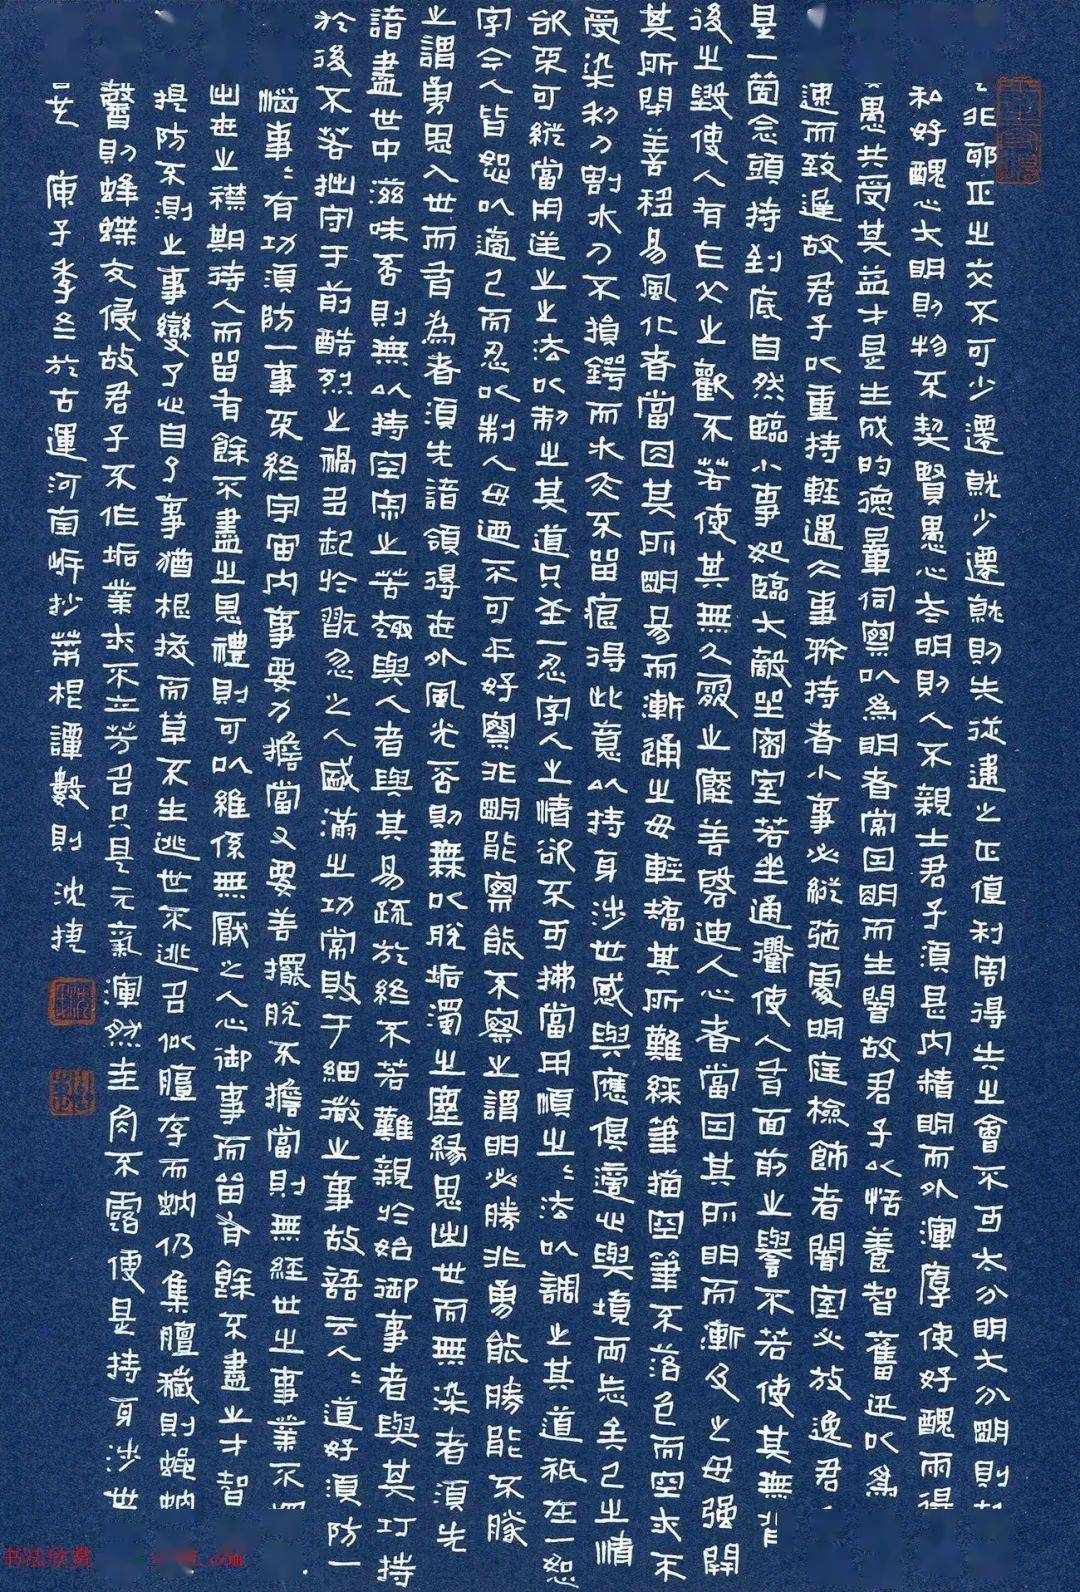 非邪正之交不可少遷就少遷就則失從違之正值利害得失之會不可太分明太分明則起
私好醜心太明則物不契賢愚心太明則人不親士君子須是内精明而外渾厚使好醜兩得
愚共受其益才是生成的德量伺察以為明者常因明而生闇故君子以恬養智奮迅以為
速而致遲故君子以重持輕遇大事矜持者小事必縱弛處明庭檢飾者闇室必放逸君
是一箇念頭持到底自然臨小事如臨大敵坐密室若坐通衢使人有面前之譽不若使其無背
後之毀使人有乍交之歡不若使其無久處之厭善啓迪人心者當因其所明而漸及之毋强開
其所閉善移易風化者當因其所明易而漸通之毋輕矯其所難綵筆描空筆不落色而空亦不
受染利刀割水刀不損鍔而水亦不留痕得此意以持身涉世感與應俱適心與境兩忘矣己之情
欲不可縱當用逆之之法以制之其道只在一忍字人之情欲不可拂當用順之〻法以調之其道祇在一恕
字今人皆恕以適己而忍以制人毋迺不可乎好察非明能察能不察之謂明必勝非勇能勝能不勝
之謂勇思入世而有為者須先諳領得世外風光否則無以脫垢濁之塵緣思出世而無染者須先
諳盡世中滋味否則無以持空寂之苦趣與人者與其易疏於終不若難親於始御事者與其巧持
於後不若拙守于前酷烈之禍多起於翫忽之人盛滿之功常敗于細微之事故語云人〻道好須防一
惱事〻有功須防一事不終宇宙内事要力擔當又要善擺脫不擔當則無經世之事業不擺
出世之襟期待人而留有餘不盡之恩禮則可以維係無厭之人心御事而留有餘不盡之才智
提防不測之事變了心自了事猶根拔而草不生逃世不逃名似膻存而蚋仍集膻穢則蠅蚋
馨則蜂蝶交侵故君子不作垢業亦不立芳名只是元氣渾然圭角不露便是持身涉世
庚子季冬於古運河南岸抄菜根譚數則 沈捷
书法欣赏